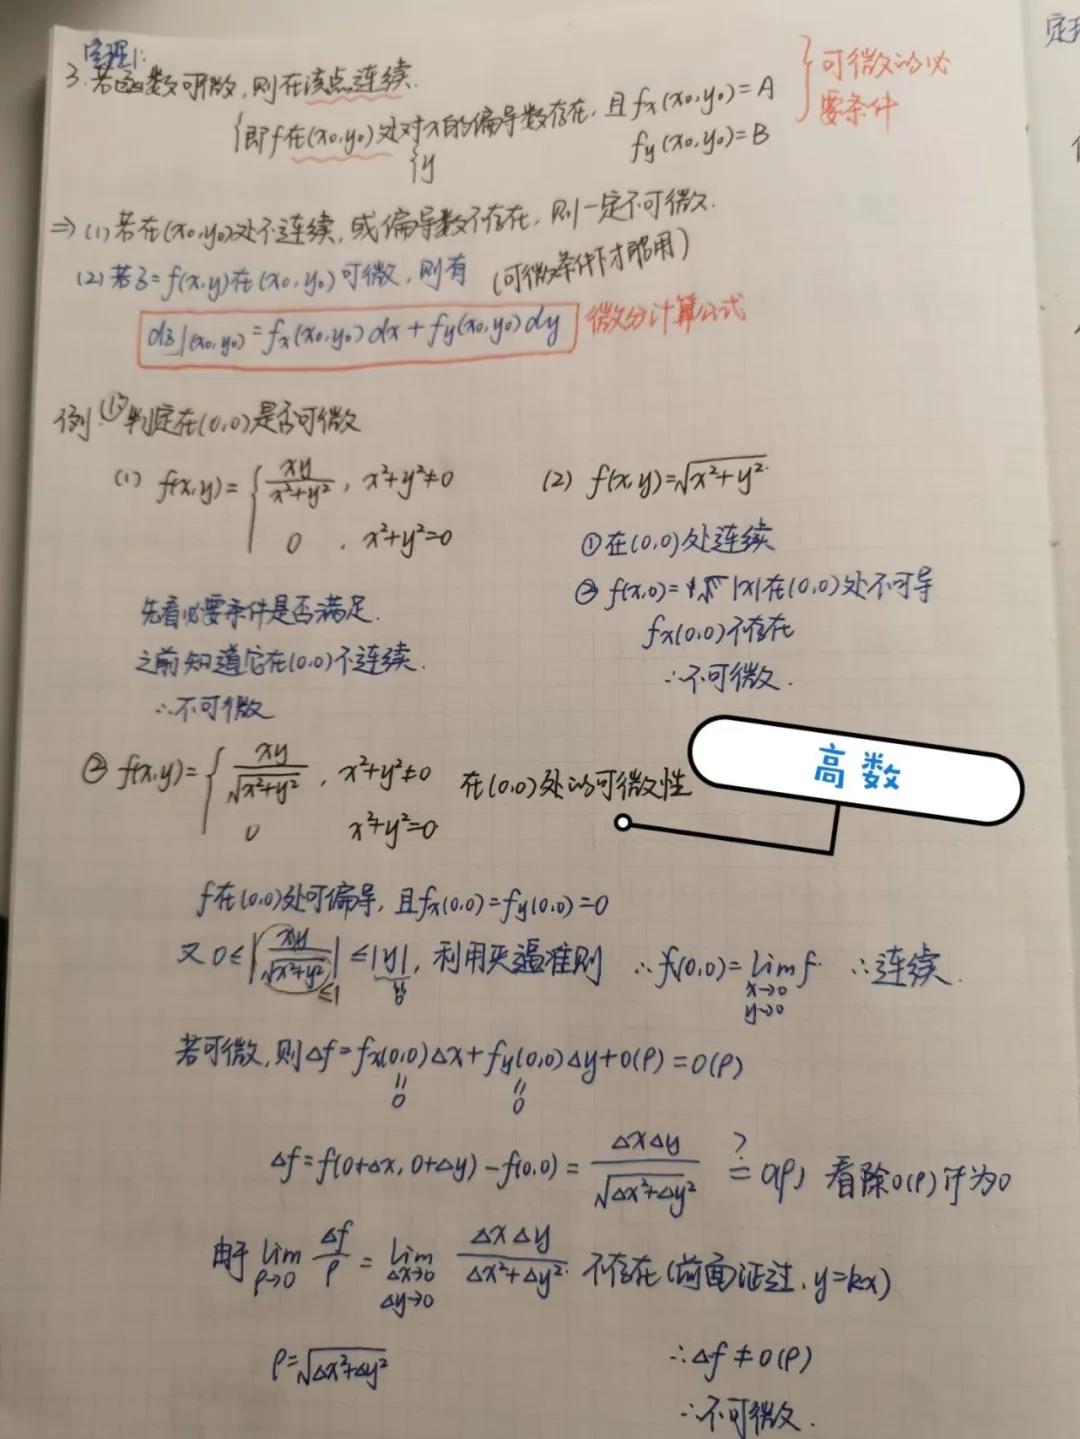 定理1:
3.若函数可微,则在该点连续.
即f在(x₀,y₀)处对x的偏导数存在,且fx(x₀,y₀)=A
y
fy(x₀,y₀)=B
可微的必
要条件
⇒(1)若在(x₀,y₀)处不连续,或偏导数不存在,则一定不可微.
(2)若z=f(x,y)在(x₀,y₀)可微,则有 (可微条件下才能用)
dz|(x₀,y₀)=fx(x₀,y₀)dx+fy(x₀,y₀)dy 微分计算公式
例:①判定在(0,0)是否可微
(1) f(x,y)={ xy/(x²+y²), x²+y²≠0
0, x²+y²=0
先看必要条件是否满足.
之前知道它在(0,0)不连续.
∴不可微
(2) f(x,y)=√(x²+y²)
①在(0,0)处连续
② f(x,0)= |x|在(0,0)处不可导
fx(0,0)不存在
∴不可微.
② f(x,y)={ xy/√(x²+y²), x²+y²≠0 在(0,0)处的可微性
0 x²+y²=0
高数
f在(0,0)处可偏导,且fx(0,0)=fy(0,0)=0
又0≤|xy/√(x²+y²)|≤|y|,利用夹逼准则 ∴f(0,0)=lim f ∴连续.
≤1
x→0
y→0
若可微,则Δf=fx(0,0)Δx+fy(0,0)Δy+o(ρ)=o(ρ)
= =
0 0
Δf=f(0+Δx,0+Δy)-f(0,0)=ΔxΔy/√(Δx²+Δy²) ?= o(ρ) 看除o(ρ)是否为0
由于 lim(ρ→0) Δf/ρ = lim(Δx→0 Δy→0) ΔxΔy/(Δx²+Δy²) 不存在(前面证过,y=kx)
ρ=√(Δx²+Δy²) ∴Δf≠o(ρ)
∴不可微.